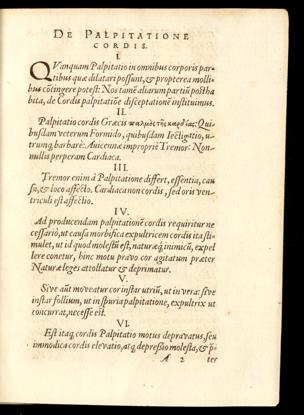 DE PALPITATIONE
CORDIS.
I.
QVanquam Palpitatio in omnibus corporis par-
tibus quæ dilatari possunt, & propterea molli-
bus cōtingere potest: Nos tamē aliarum partiū posthа
bita, de Cordis palpitatiōe disceptationē instituimus.
II.
Palpitatio cordis Græcis παλμὸς τῆς καρδίας: Qui-
busdam veterum Formido, quibusdam Iectigatio, u-
trunq; barbarè: Auicennæ impropriè Tremor: Non-
nullis perperam Cardiaca.
III.
Tremor enim à Palpitatione differt, essentia, cau
sa, & loco affecto. Cardiaca non cordis, sed oris ven-
triculi est affectio.
IV.
Ad producendam palpitationē cordis requiritur ne
cessariò, ut causa morbifica expultricem cordis ita sti-
mulet, ut id quod molestū est, naturæq; inimicū, expel
lere conetur, hinc motu prauo cor agitatum præter
Naturæ leges attollatur & deprimatur.
V.
Siue aūt moueatur cor instar utriū, ut in vera: siue
instar follium, ut in spuria palpitatione, expultrix ut
concurrat, necesse est.
VI.
Est itaq; cordis Palpitatio motus deprauatus, seu
immodica cordis eleuatio, atq; depressio molesta, & p̄-
A 2 ter